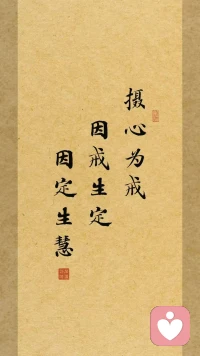 摄心为戒
因戒生定
因定生慧